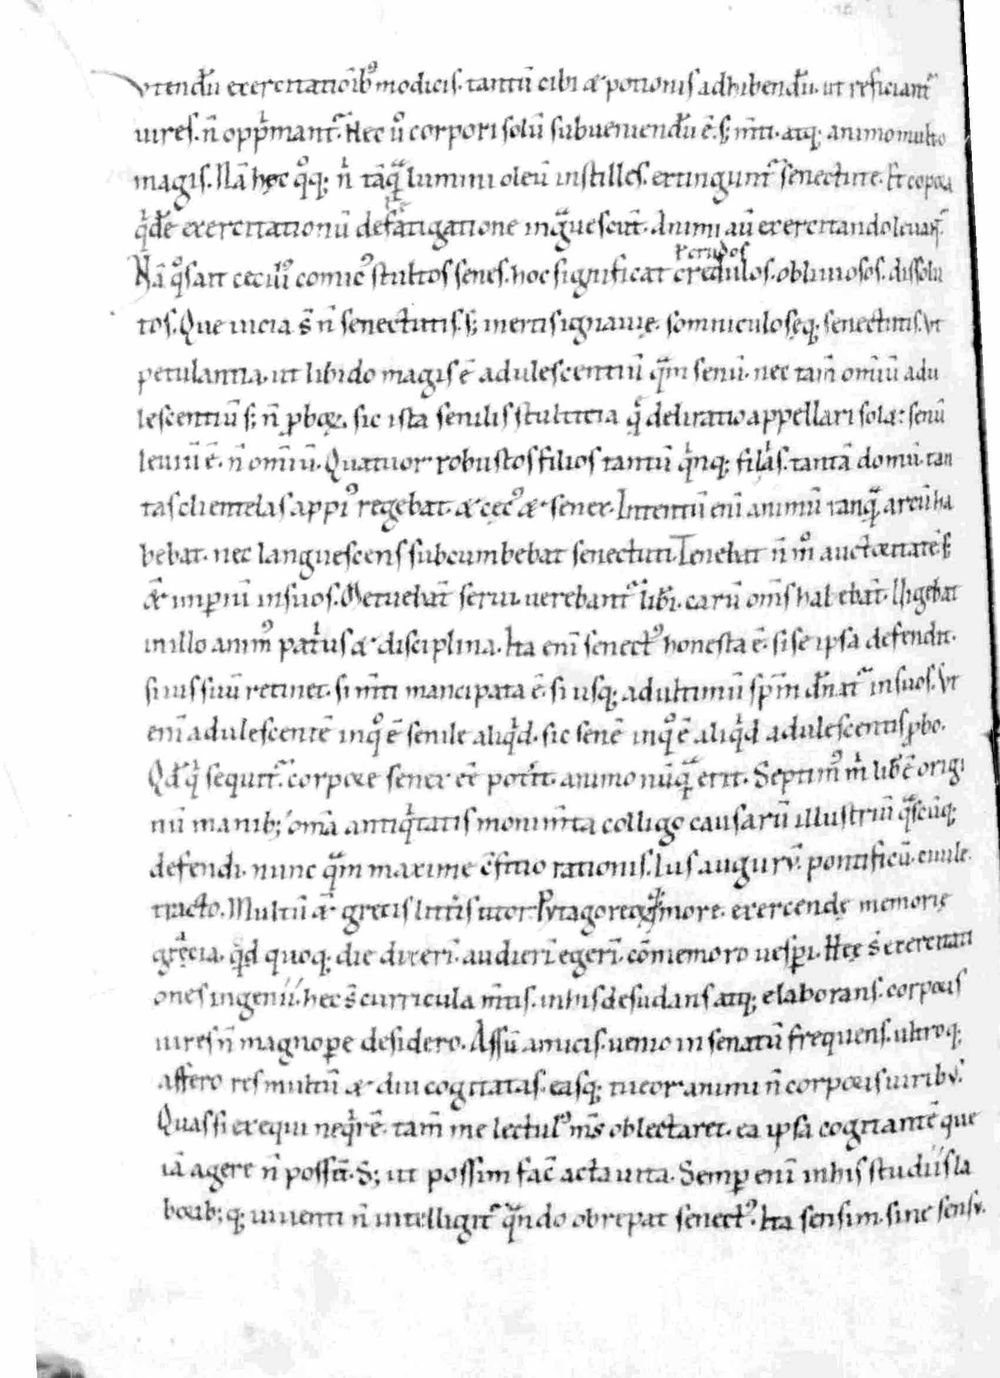 vtendũ exercitatiõib⁹ modicis. tantũ cibi & potionis adhibendũ. ut reficiant᷑
uires. ñ opp̃mant᷑. Hec ů corpori solũ subueniendũ ẽ. s; m̃ti. atq; animo multo
magis. Nã hęc q̊q; ñ tãquã lumini oleũ instilles. extingunt᷑ senectute. Et corpora
q̇dẽ exercitationũ defatigatione ingrauescũt. Animi aũ exercitando leuant᷑.
Nã q̊s ait ceciliꝰ comicꝰ stultos senes. hoc significat credulos. obliuiosos. dissolu
tos. Que uicia s̃ ñ senectutis. s; inertis ignauię. somniculosęq; senectutis. Vt
petulantia. ut libido magis ẽ adulescentiũ quã senũ. nec tam̃ om̃iũ adu
lescentiũ s; ñ ꝓboꝝ. sic ista senilis stulticia que deliratio appellari sol&: senũ
leuiũ ẽ. ñ om̃iũ. Quatuor robustos filios tantũ q̇nq; filias. tantã domũ. tan
tas clientelas appiꝰ regebat. & cęcꝰ & senex. Intentũ eni animũ tanquã arcũ ha
bebat. nec languescens subcumbebat senectuti. Tenebat ñ m̊ auctoritatẽ s;
& imꝑiũ in suos. Metuebãt serui. uerebant᷑ libi. carũ om̃s habebãt. Uigebat
in illo animꝰ patriꝰ & disciplina. Ita eni senectꝰ honesta ẽ. si se ipsa defendit.
si ius suũ retinet. si m̃ti mancipata ẽ. si usq; ad ultimũ sp̃m dñat᷑ in suos. Vt
enĩ adulescentẽ in quo ẽ senile aliq̇d. sic senẽ in quo ẽ aliq̇d adulescentis ꝓbo.
Qd̃ qui sequit᷑. corpore senex ẽe pot̃it. animo nũquã erit. Septimꝰ m̃ lib̃ ẽ origi
nũ manib; om̃a antiq̇tatis monum̃ta colligo causarũ illustriũ quascũq;
defendi. nunc quã maxime c̃ficio rationis. Ius augurũ. pontificũ. ciuile
tracto. Multũ & grecis litt̃is utor. Pytagoreoꝝq; more. exercendę memorię
gracia. q̇d quoq; die dixeri. audieri egeri. cõmemoro uesꝑi. Hęc s̃ exercitati
ones ingenii. hec s̃ curricula m̃tis. in his desudans atq; elaborans. corporis
uires ñ magnopẽ desidero. Assũ amicis. uenio in senatũ frequens. ultroq;
affero res multũ & diu cogitatas. easq; tueor animi ñ corporis uiribꝰ.
Quas si exequi neq̇rẽ. tam̃ me lectulꝰ mẽs oblectaret. ea ipsa cogitantẽ que
iã agere ñ possẽ. S; ut possim fac̃ acta uita. Semꝑ eni in his studiis la
borib;q; uiuenti ñ intelligit᷑ quãdo obrepat senectꝰ. Ita sensim. sine sensu.